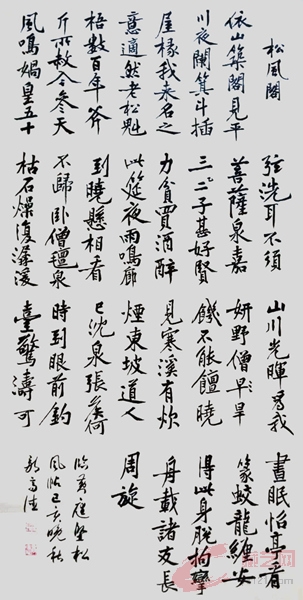 松風閣
依山築閣見平
川夜闌箕斗插
屋椽我來名之
意適然老松魁
梧數百年斧
斤所赦今參天
風鳴媧皇五十
弦洗耳不須
菩薩泉嘉
三二子甚好賢
力貧買酒醉
此筵夜雨鳴廊
到曉懸相看
不歸臥僧氈泉
枯石燥復潺湲
山川光暉為我
妍野僧早旱
饑不能饘曉
見寒溪有炊
煙東坡道人
已沈泉張荷
時到眼前釣
臺驚濤可
晝眠怡亭看
篆蛟龍纏安
得此身脫拘攣
舟載諸友長
周旋
臨黃庭堅松
風帖己亥晚秋